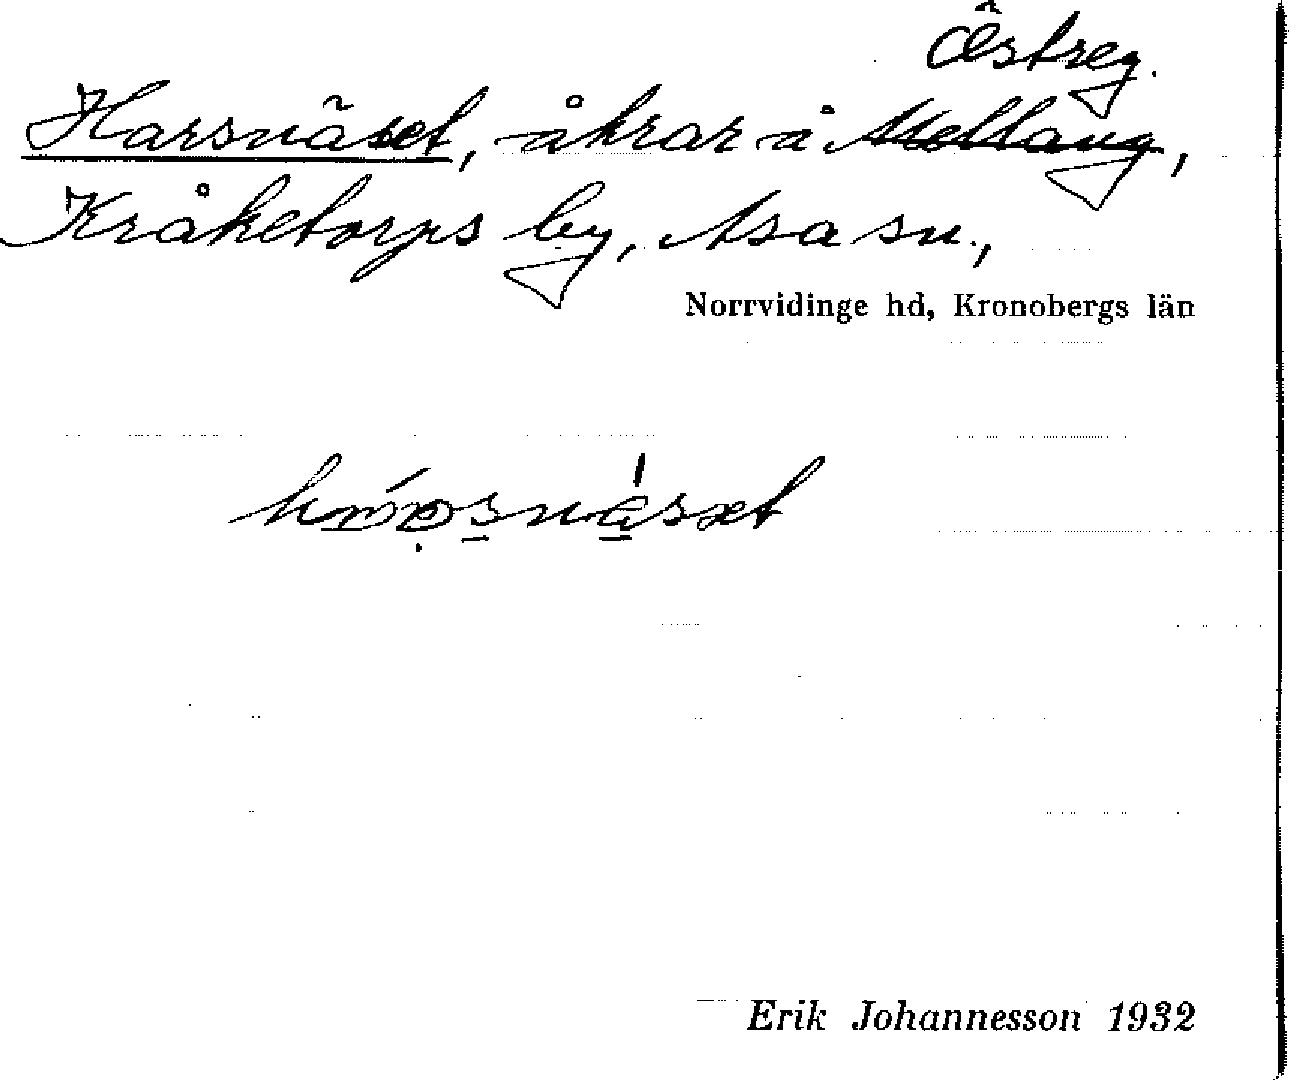 Östreg.
Harsnäset, åkrar å Mellang,
Kråketorps by, Asa sn.,
Norrvidinge hd, Kronobergs län
Erik Johannesson 1932